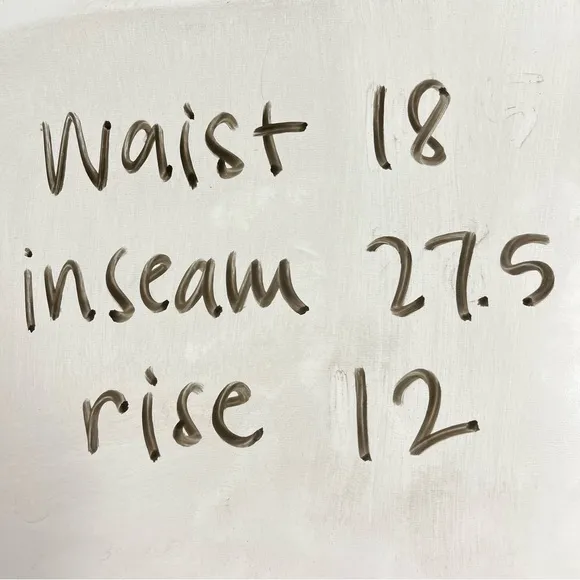 Waist 18
inseam 27.5
rise 12